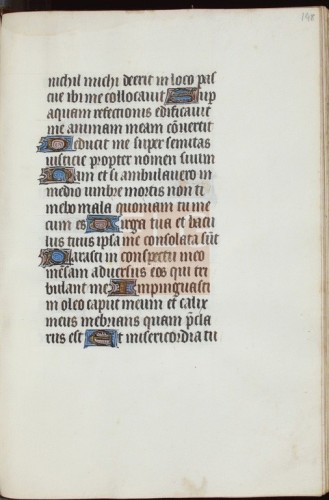 148
nichil michi deerit in loco pas
cue ibi me collocauit Sup
aquam refectionis edificauit
me animam meam cōuertit
Deduxit me super semitas
iusticie propter nomen suum
Nam et si ambulauero in
medio umbre mortis non ti
mebo mala quoniam tu me
cum es Uirga tua et bacu
lus tuus ipsa me consolata sūt
Parasti in conspectu meo
mēsam aduersus eos qui tri
bulant me Impinguasti
in oleo caput meum et calix
meus inebrians quam p̄cla
rus est Et misericordia tu